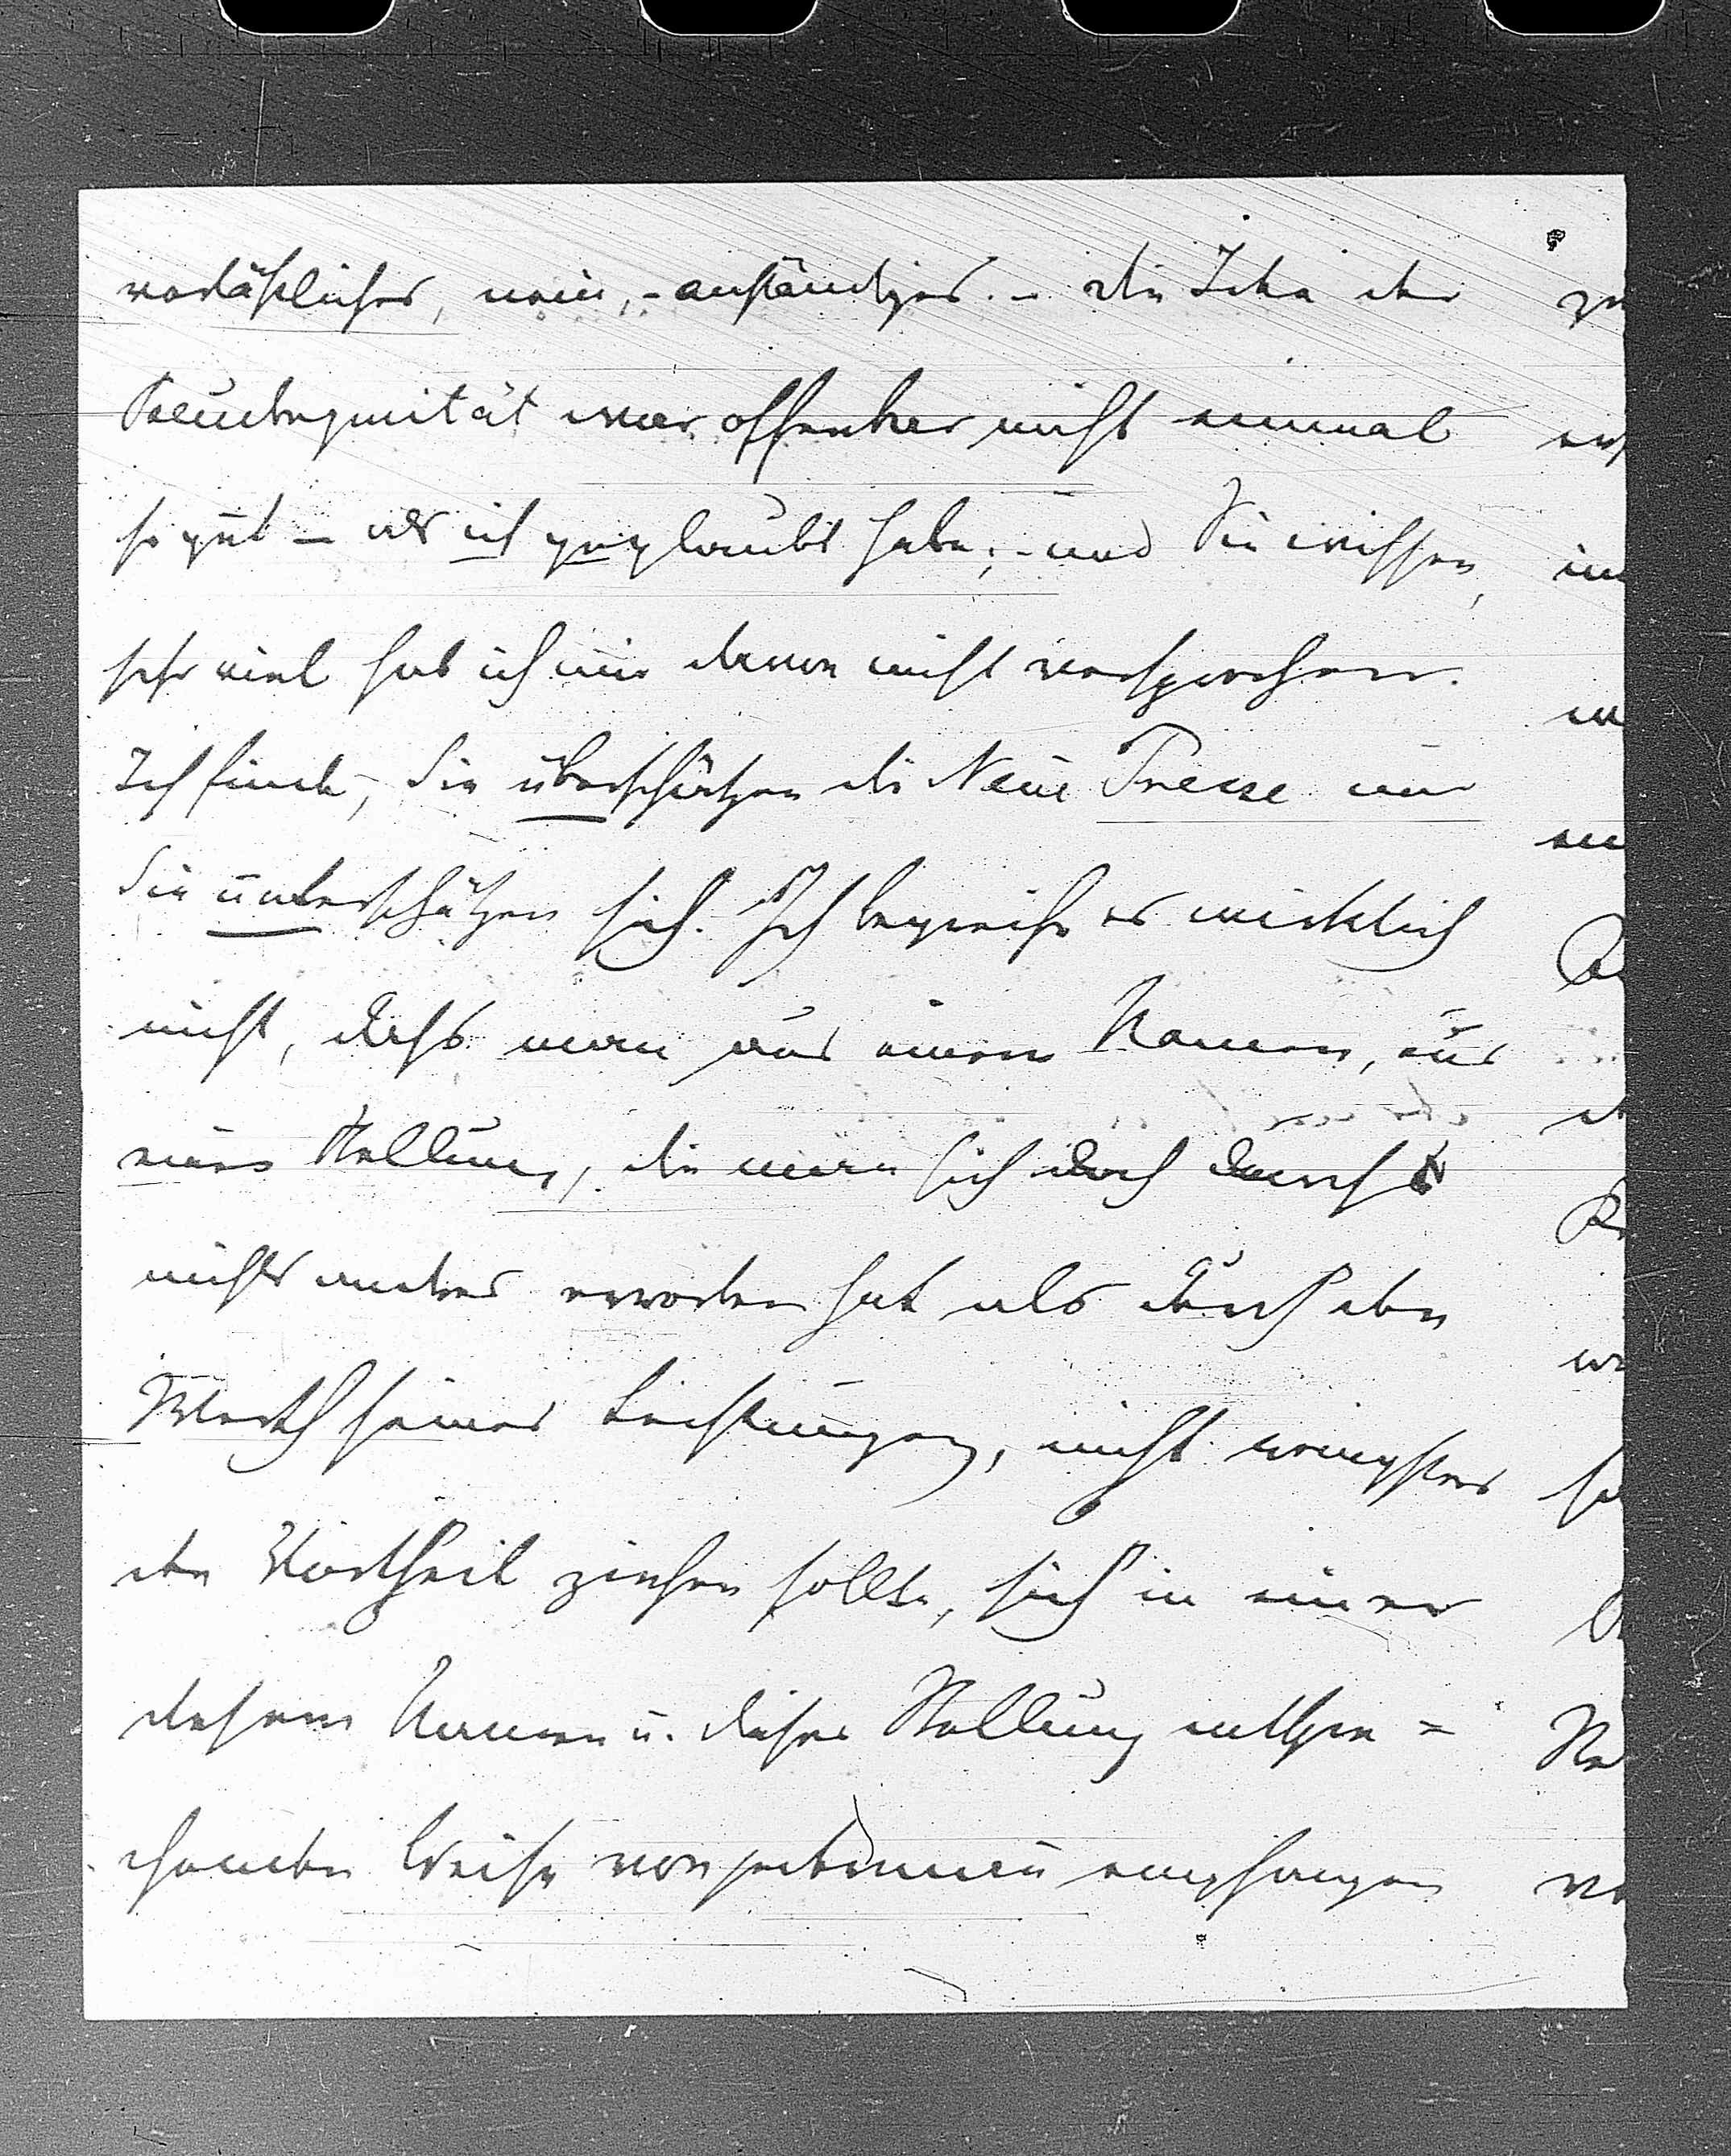 verläßlicher, nein, - anständiger. - die Idee der
Pseudonymität war offenbar nicht einmal
so gut – als ich geglaubt habe; - und Sie wissen,
sehr viel hab ich mir davon nicht versprochen.
Ich finde, Sie überschätzen die Neue Presse und
Sie unterschätzen sich. Ich begreife es wirklich
nicht, dass man aus einem Namen, aus
einer Stellung, die man sich doch durch
nichts andres erworben hat als durch den
Werth seiner Leistungen, nicht wenigstens
den Vortheil ziehen sollte, sich in einer
diesem Namen u. dieser Stellung entspre=
chenden Weise von empfangen